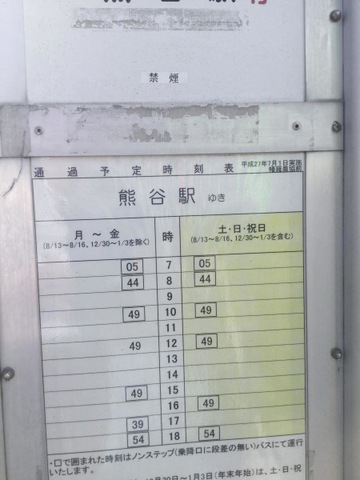 禁煙
通過予定時刻表 平成27年7月1日実施
熊谷駅 ゆき
月～金 時 土・日・祝日
(8/13～8/16、12/30～1/3を除く) (8/13～8/16、12/30～1/3を含む)
05 7 05
44 8 44
9
49 10 49
11
49 12 49
13
14
49 15
16 49
39 17
54 18 54
・口で囲まれた時刻はノンステップ(乗降口に段差の無い)バスにて運行
いたします。
12月30日～1月3日(年末年始)は、土・日・祝